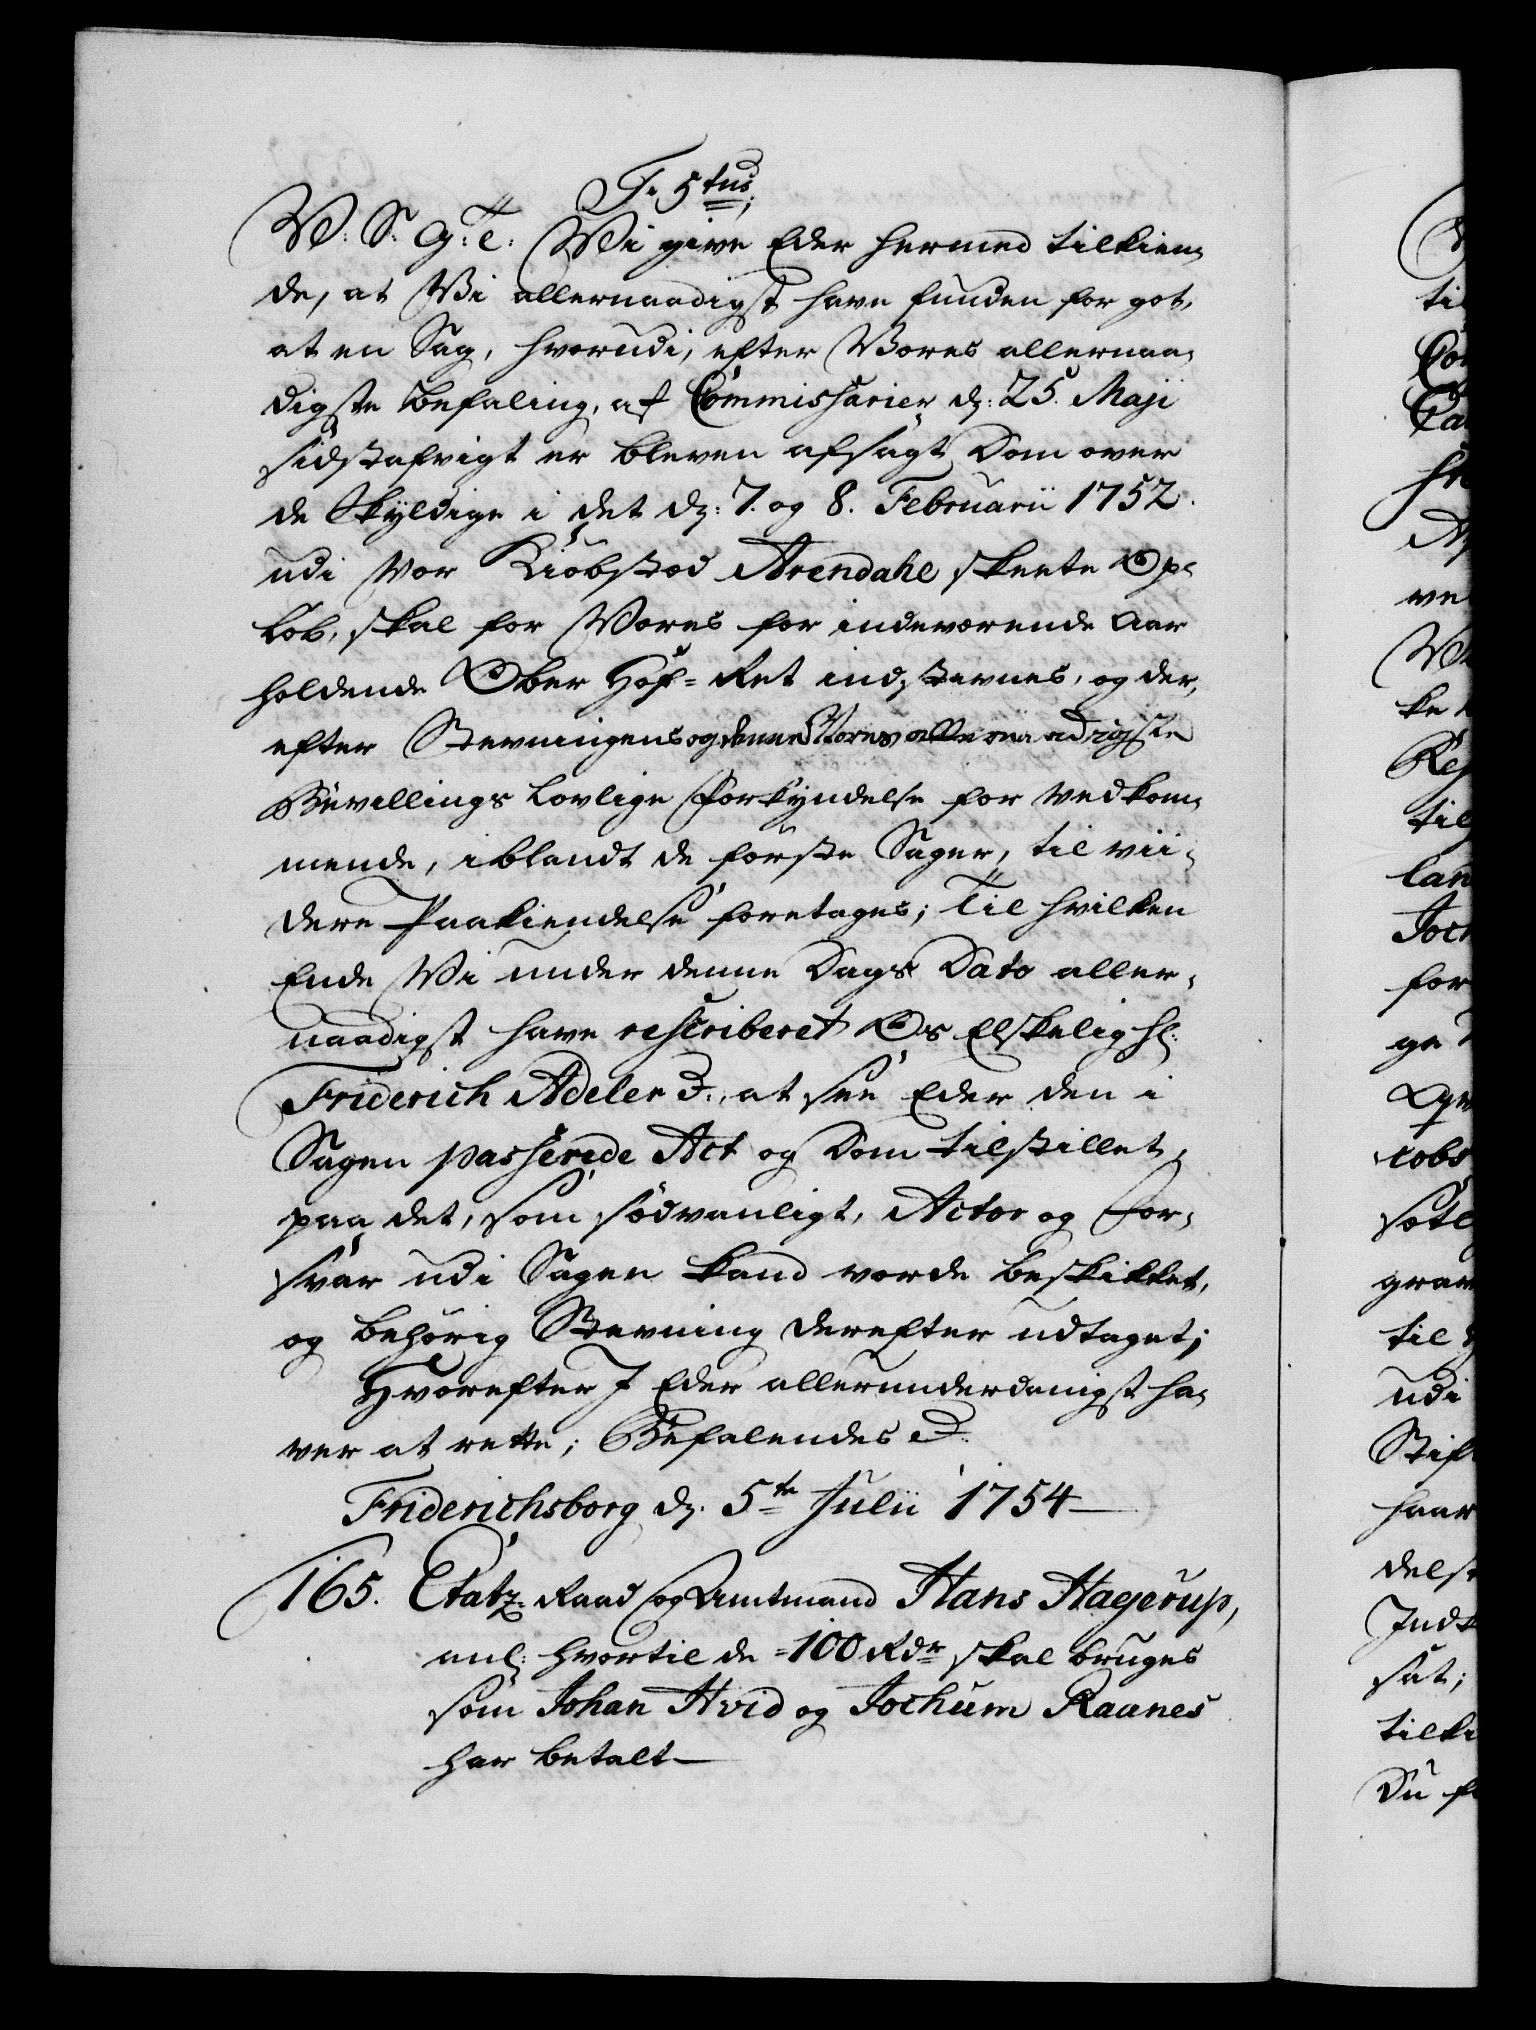 F. 5tus
V: S: G: T: Vi give Eder hermed tilkien-
de, at Vi allernaadigst have funden for got,
at en Sag, hvorudi, efter Vores allernaa-
digste Befaling, af Commissarier d: 25. Maji
sidstafvigt er bleven afsagt Dom over
de Skyldige i det d: 7. og 8. Februarii 1752.
udi Vor Kiöbsted Arendahl skeete Op-
löb, skal for Vores for indeværende Aar
holdende Ober Hof-Ret indstevnes, og der,
efter Stevningens og denne Vores allernaadigste
Bevillings lovlige Forkyndelse for vedkom-
mende, iblandt de förste Sager, til vii-
dere Paakiendelse foretages; Til hvilken
Ende Vi under denne Dags Dato aller-
naadigst have rescriberet Os Elskelig H:
Friderich Adeler &., at see Eder den i
Sagen passerede Act og Dom tilstillet,
paa det, som sædvanligt, Actor og For-
svar udi Sagen kand vorde beskikket,
og behörig Stevning derefter udtaget;
Hvorefter I Eder allerunderdanigst ha-
ver at rette; Befalendes &.
Friderichsborg d: 5te Julii 1754
165. Etatz-Raad og Amtmand Hans Hagerup,
anl: hvortil de 100 Rdr skal bruges
som Johan Hvid og Jochum Raanes
har betalt
V
til
Com
Ca
ve
ke
Re
til
lan
Joch
for
ge
iobs
grav
til
udi
Stif
haar
dels
Ind
sat;
tilki
Du f